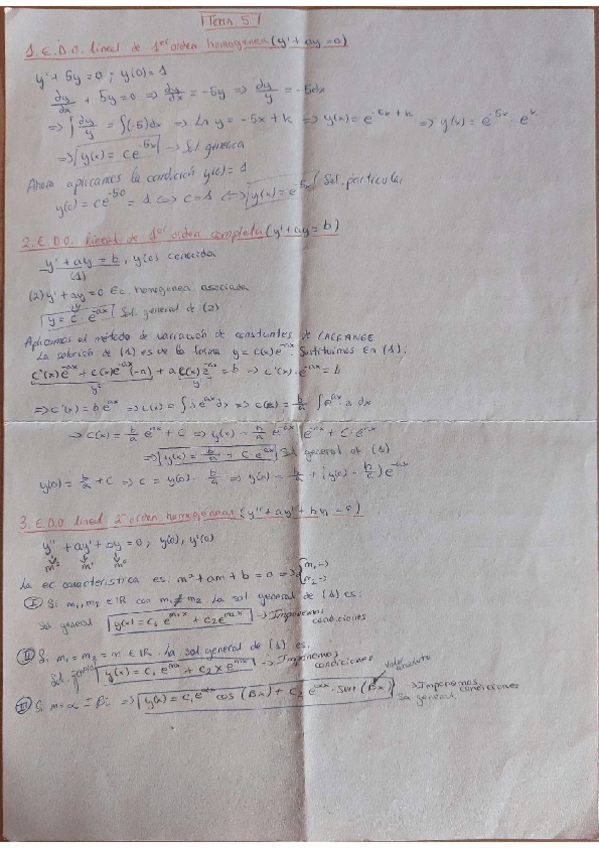 TEMA 5
1. E.D.O. lineal de 1er orden homogénea (y' + ay = 0)
y' + 5y = 0 ; y(0) = 1
dy/dx + 5y = 0 => dy/dx = -5y => dy/y = -5dx
=> ∫ dy/y = ∫(-5)dx => Ln y = -5x + k => y(x) = e^(-5x + k) => y(x) = e^(-5x) · e^k
=> y(x) = ce^(-5x) -> Sol general
Ahora aplicamos la condición y(0) = 1
y(0) = ce^(-5·0) = 1 <=> c = 1 <=> y(x) = e^(-5x) Sol. particular
2. E.D.O. lineal de 1er orden completa (y' + ay = b)
y' + ay = b, y(0) conocida
(1)
(2) y' + ay = 0 Ec. homogenea asociada
y = c · e^(-ax) Sol general de (2)
Aplicamos el método de variación de constantes de LAGRANGE
La solución de (1) es de la forma y = c(x)e^(-ax). Sustituimos en (1):
c'(x)e^(-ax) + c(x)e^(-ax)(-a) + a c(x)e^(-ax) = b => c'(x)·e^(-ax) = b
y' y
=> c'(x) = b e^(ax) => c(x) = ∫ b e^(ax) dx => c(x) = b/a ∫ e^(ax) · a dx
=> c(x) = b/a e^(ax) + C => y(x) = b/a e^(ax) e^(-ax) + C · e^(-ax)
=> y(x) = b/a + C e^(-ax) Sol general de (1)
y(0) = b/a + C => C = y(0) - b/a => y(x) = b/a + (y(0) - b/a) e^(-ax)
3. E.D.O lineal 2º orden homogéneas (y'' + ay' + by = 0)
y'' + ay' + by = 0, y(0), y'(0)
m² m¹ m⁰
La ec característica es: m² + am + b = 0 => { m₁ ->
m₂ ->
I Si m₁, m₂ ∈ ℝ con m₁ ≠ m₂. la sol general de (1) es:
Sol general y(x) = c₁ e^(m₁x) + c₂ e^(m₂x) -> Imponemos
condiciones
II Si m₁ = m₂ = m ∈ ℝ. La sol general de (1) es:
Sol general y(x) = c₁ e^(mx) + c₂ x e^(mx) -> Imponemos
condiciones
valor absoluto
III Si m = α ± βi => y(x) = c₁ e^(αx) cos (βx) + c₂ e^(αx) · sen (βx) -> Imponemos
condiciones
Sol general